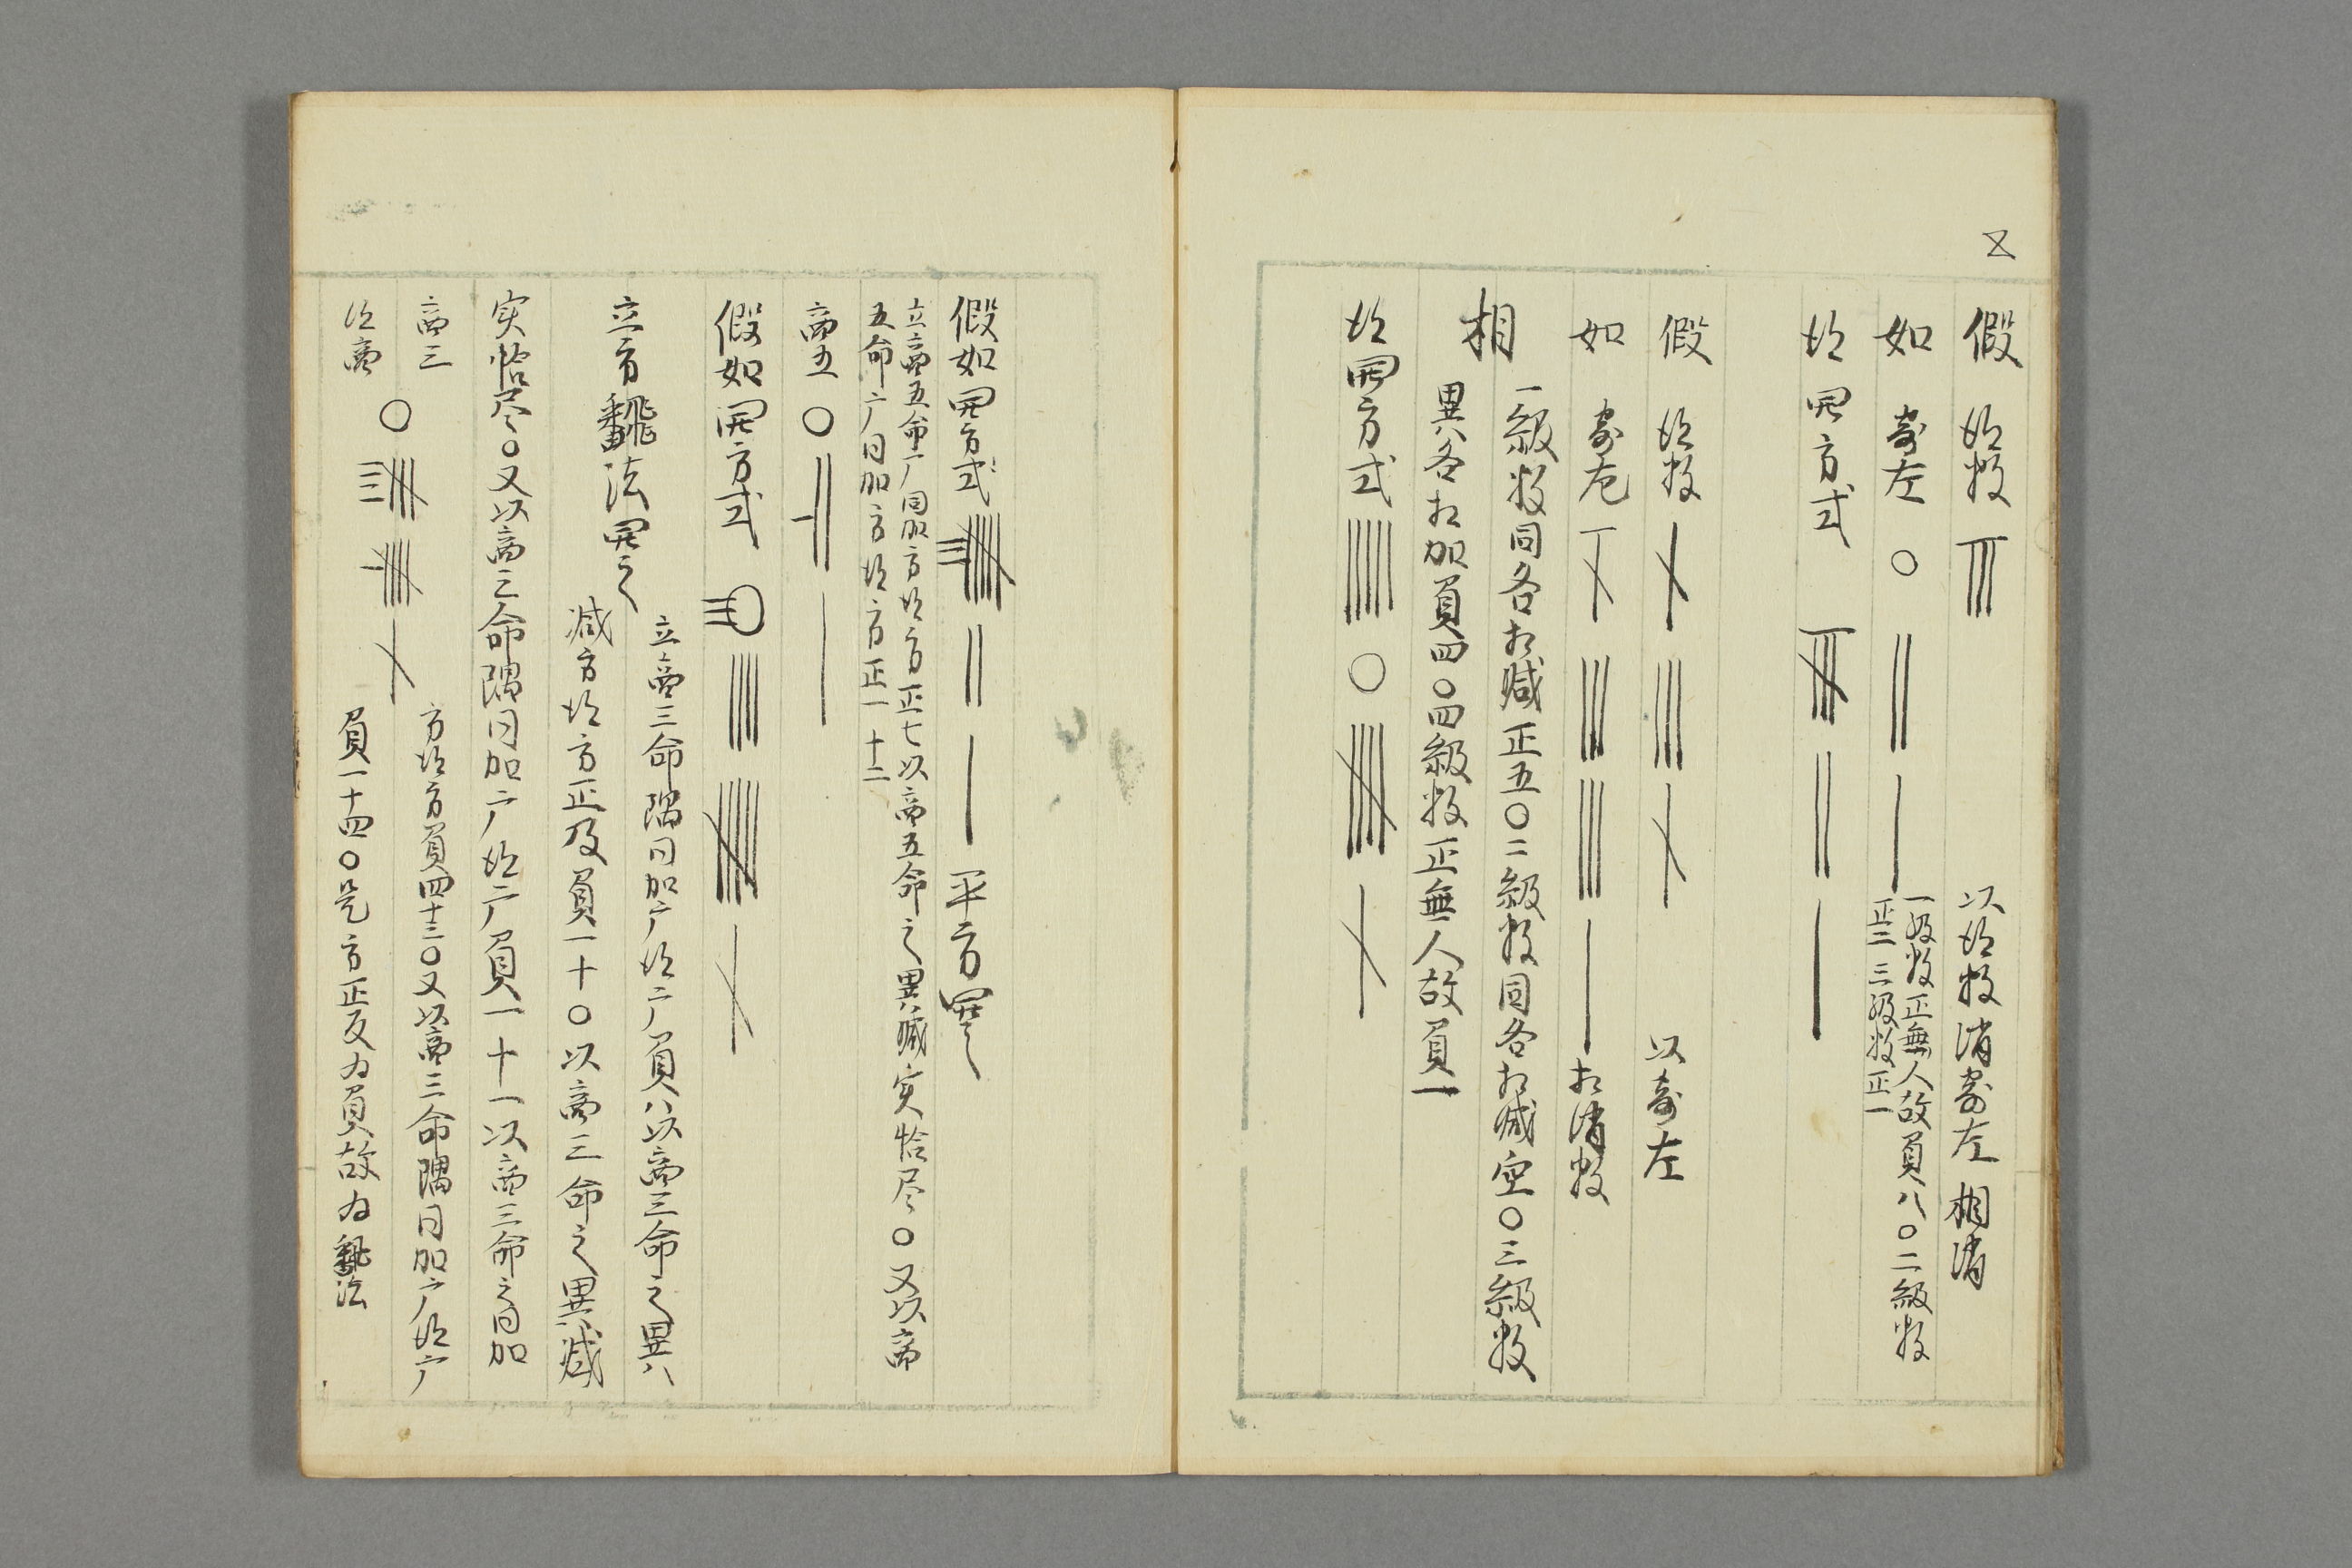 又
假 得数 〣 以得数消寄左相消
如 寄左 〇 〢 〡 一級数正無人故負八〇二級数
正二 三級数正一
得開方式 〢 〡
假 得数 以寄左
如 寄左 〣 〡 相消数
相 一級数同各相減正五〇二級数同各相減空〇三級数
異各相加負四〇四級数正無人故負一
得開方式 〇
假如開方式 〢 〡 平方開之
立商五命廉同加方得方正七以商五命之異減実恰尽〇又以商
五命廉同加方得方正一十二
商五 〇 〡
假如開方式
立方飜法開之 立商三命隅同加廉得廉負八以商三命之異
減方得方正反負一十〇以商三命之異減
実恰尽〇又以商三命隅同加廉得廉負一十一以商三命之同加
商三 方得方負四十三〇又以商三命隅同加廉得廉
得商 〇 負一十四〇是方正反為負故為飜法